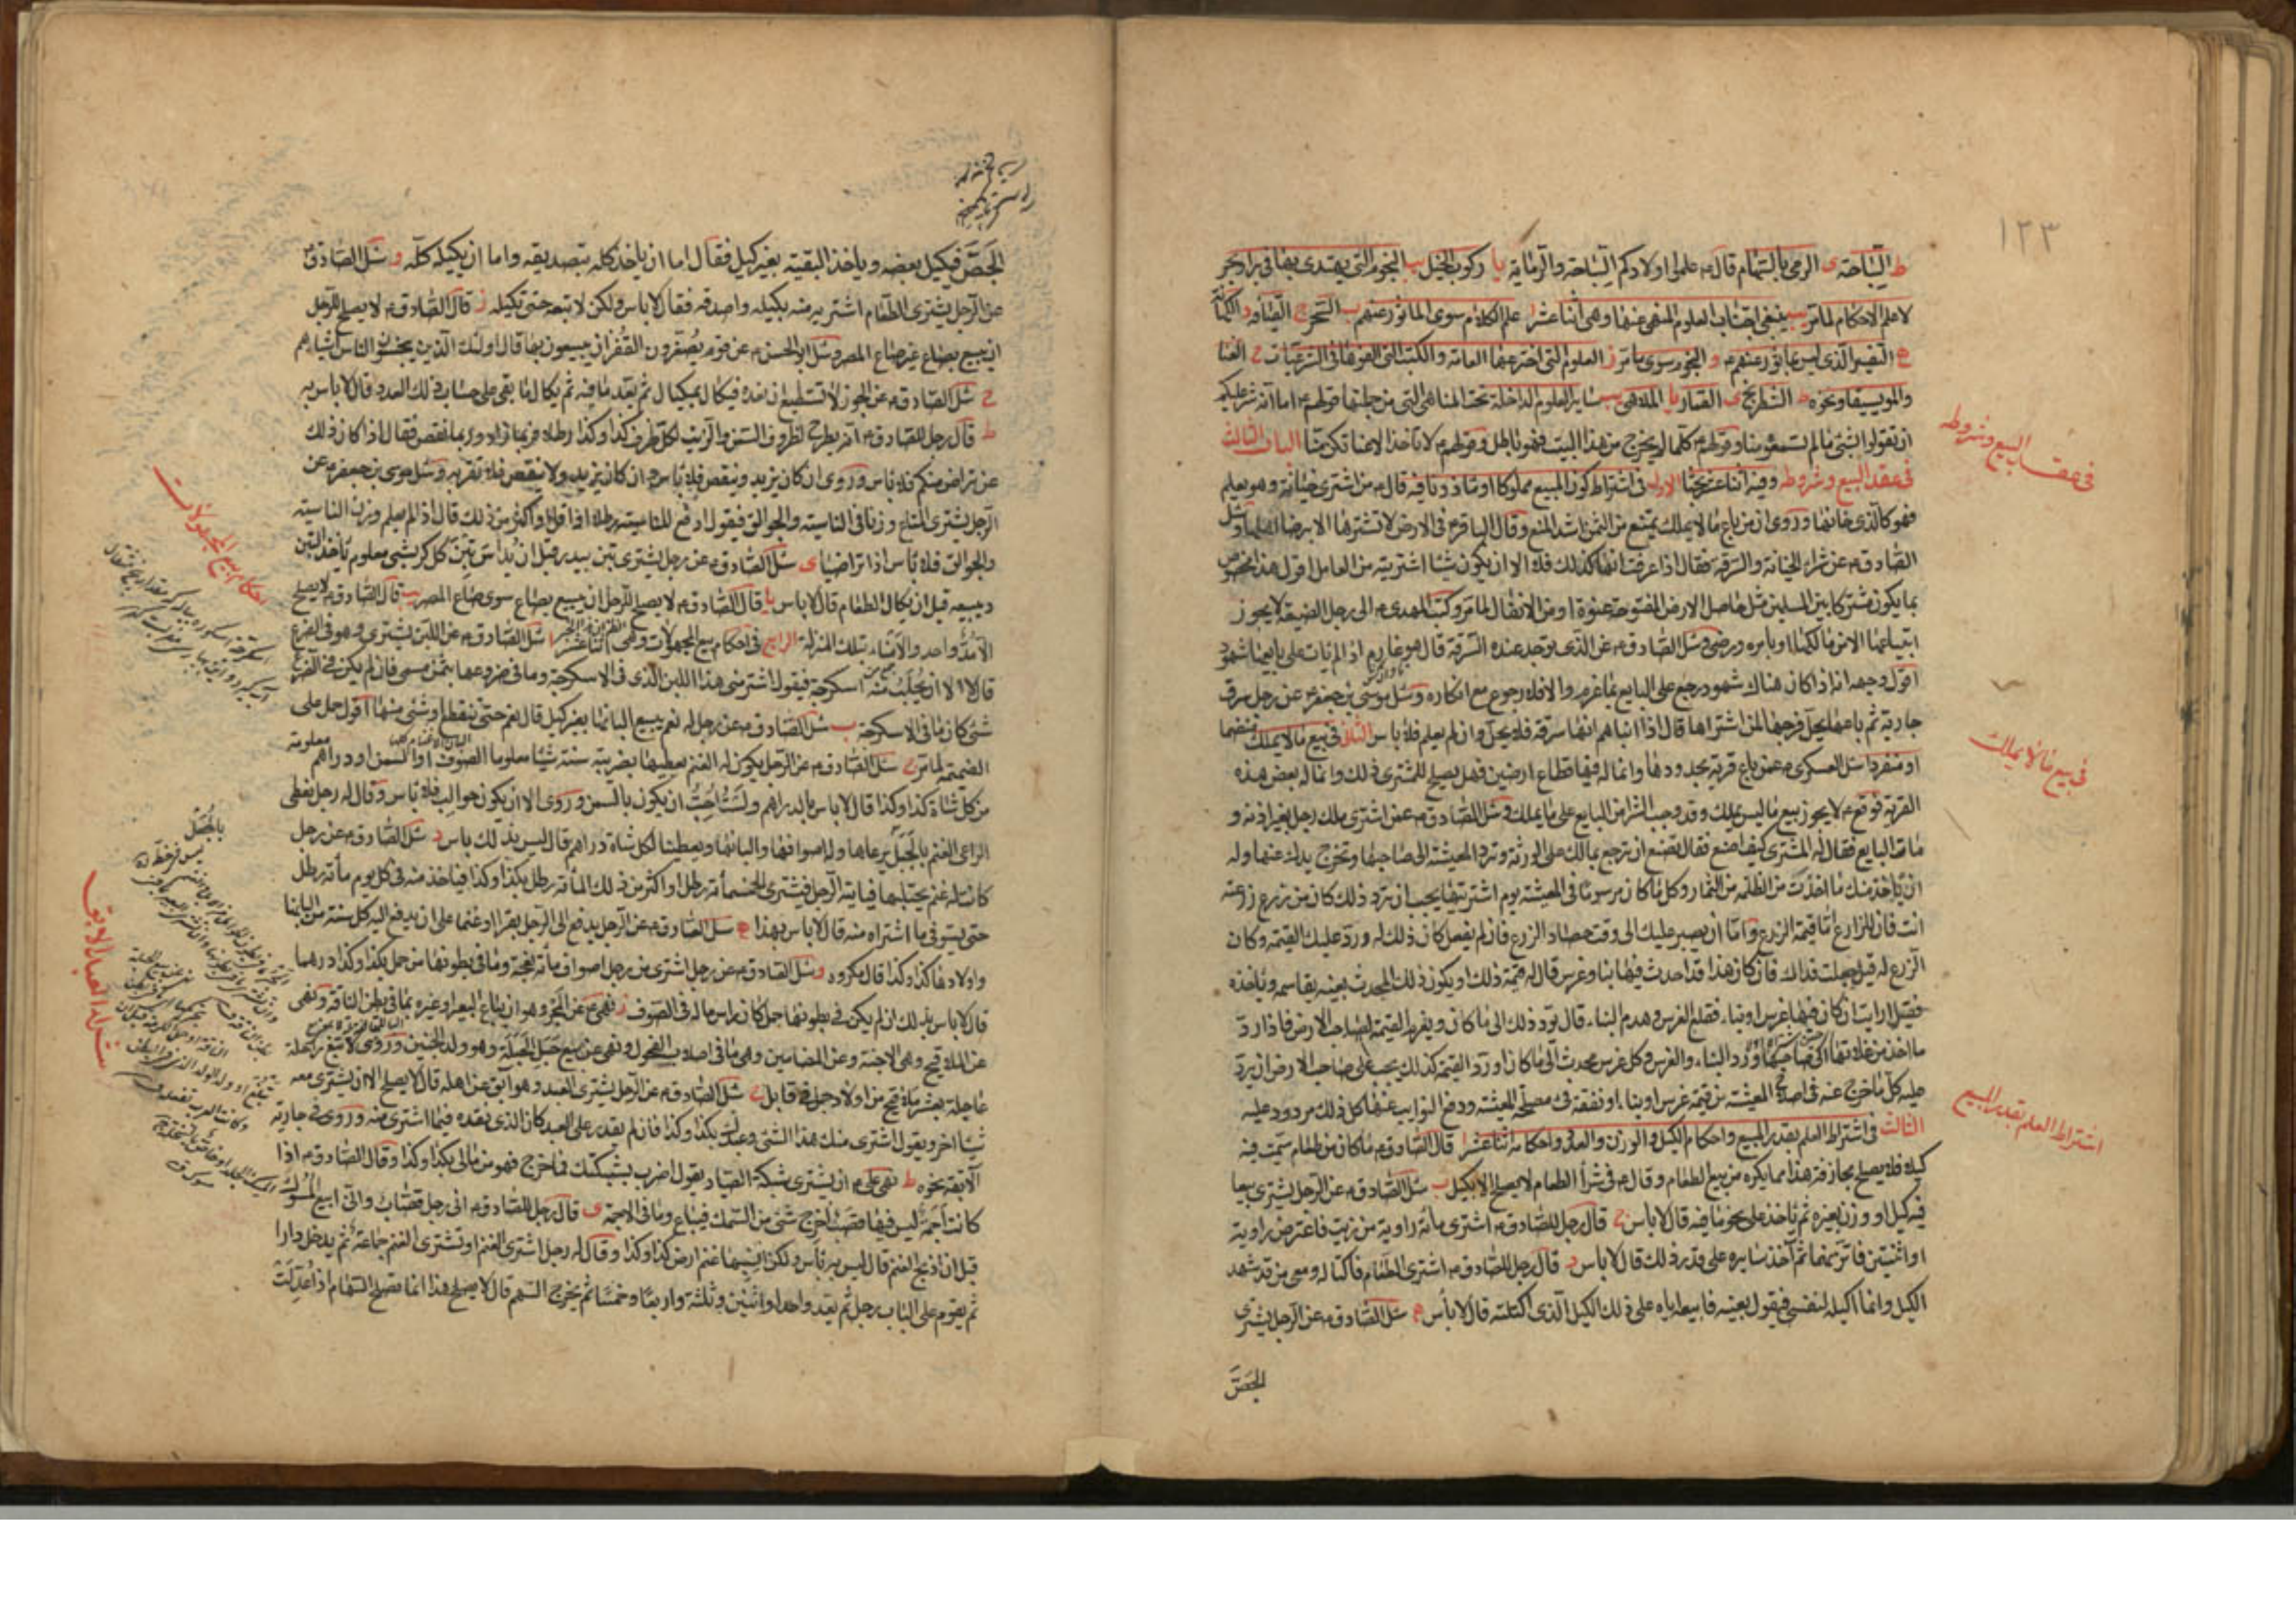 ١٢٣
ط السباحة ى الرمى بالسهام قال ع علموا اولادكم السباحة والرماية يا ركوب الخيل يب النجوم التى يهتدى بها فى بر او بحر
لا علم الاحكام لما مر ينبغى اجتناب العلوم المنهى عنها وهى اثنا عشر ا علم الكلام سوى الماثور عنهم ب السحر ج القيافة د الكهانة
ه التفسير الذى ليس بماثور عنهم و النجوم سوى ما مر ز العلوم التى اخترعها العامة والكتب التى الفوها فى الشرعيات ح الغنا
والموسيقا ونحوه ط الشطرنج ى القمار يا الملاهى يب ساير العلوم الداخلة تحت المناهى التى من جملتها قولهم ع اما انه شر عليكم
ان تقولوا بشئ ما لم تسمعوه منا وقولهم ع كلما لم يخرج من هذا البيت فهو باطل وقولهم ع لا تاخذ الا عنا تكن منا الباب الثالث
فى عقد البيع وشروطه وفيه اثنا عشر بحثا الاول فى اشتراط كون المبيع مملوكا او ماذونا فيه قال ع من اشترى خيانة وهو يعلم
فهو كالذى خانها وروى ان من باع ما لا يملك يمنع من الثمن اشد المنع وقال الباقر ع فى الارض لا تشترها الا برضا اهلها وسئل
الصادق ع عن شراء الخيانة والسرقة فقال اذا عرفت انها كذلك فلا الا ان يكون شيئا اشتريته من العامل اقول هذا مخصوص
بما يكون مشتركا بين المسلمين مثل حاصل الارض المفتوحة عنوة او من الانفال لما مر وكتب المهدى ع الى رجل الضيعة لا يجوز
ابتياعها الا من مالكها او بامره ورضى وسئل الصادق ع عن الذى يوجد عنده السرقة قال هو غارم اذا لم يات على بايعها شهود
اقول وجهه انه اذا كان هناك شهود رجع على البايع بما غرم والا فلا رجوع مع انكاره وسئل موسى بن جعفر ع عن رجل سرق
جارية ثم باعها يحل فرجها لمن اشتراها قال اذا انباهم انها سرقة فلا يحل وان لم يعلم فلا باس الثانى فى بيع ما لا يملك منضما
او منفردا سئل العسكرى ع عمن باع قرية بحدودها وانما له فيها قطاع ارضين فهل يصلح للمشترى ذلك وانما له بعض هذه
القرية فوقع ع لا يجوز بيع ما ليس يملك وقد وجب الشرا من البايع على ما يملك وسئل الصادق ع عمن اشترى ملك رجل بغير اذنه و
مات البايع فقال له المشترى كيف اصنع فقال تصنع ان ترجع بمالك على الورثة وترد المعيشة الى صاحبها وتخرج يدك عنها وله
ان ياخذ منك ما اخذت من الغلة من الثمار وكل ما كان مرسوما فى المعيشة يوم اشتريتها يجب ان ترد ذلك كان من زرع زرعته
انت فان للزارع اما قيمة الزرع واما ان يصبر عليك الى وقت حصاد الزرع فان لم يفعل كان ذلك له ورد عليك القيمة وكان
الزرع له قيل جعلت فداك فان كان هذا قد احدث فيها بنا وغرس قال له قيمة ذلك او يكون ذلك المحدث بعينه يقلعه وياخذه
فقيل ارايت ان كان فيها غرس او بناء فقلع الغرس وهدم البناء قال يرد ذلك الى ما كان ويغرم القيمة لصاحب الارض فاذا رد
ما اخذ من غلاتها الى صاحبها ورد البناء والغرس وكل غرس محدث الى ما كان او رد القيمة كذلك يجب على صاحب الارض ان يرد
عليه كل ما خرج عنه فى اصلاح المعيشة من قيمة غرس او بناء او نفقة فى مصلحة المعيشة ودفع النوايب عنها كل ذلك مردود عليه
الثالث فى اشتراط العلم بقدر المبيع واحكام الكيل والوزن والعد واحكامه اثنا عشر ا قال الصادق ع ما كان من طعام سميت فيه
كيلا فلا يصلح مجازفة هذا مما يكره من بيع الطعام وقال ع فى شرا الطعام لا يصلح الا بكيل ب سئل الصادق ع عن الرجل يشترى بيعا
فيه كيل او وزن بغيره ثم ياخذ على نحو ما فيه قال لا باس ج قال رجل للصادق ع اشترى مائة راوية من زيت فاعترض راوية
او اثنتين فاتزنهما ثم آخذ سايره على قدر ذلك قال لا باس د قال رجل للصادق ع اشترى الطعام فاكتاله ومعى من قد شهد
الكيل وانما اكيله لنفسى فيقول بعنيه فابيعه اياه على ذلك الكيل الذى اكتلته قال لا باس ه سئل الصادق ع عن الرجل يشترى
الجص
فى عقد البيع وشروطه
فى بيع ما لا يملك
اشتراط العلم بقدر المبيع
الجص فيكيل بعضه وياخذ البقية بغير كيل فقال اما ان ياخذ كله بتصديقه واما ان يكيله كله و سئل الصادق ع
عن الرجل يشترى الطعام اشتريه منه بكيله واصدقه فقال لا باس ولكن لا تبعه حتى تكيله ز قال الصادق ع لا يصلح للرجل
ان يبيع بصاع غير صاع المصر وسئل ابو الحسن ع عن قوم يصغرون القفزان يبيعون بها قال اولئك الذين يبخسون الناس اشياءهم
ح سئل الصادق ع عن الجوز لا نستطيع ان نعده فيكال بمكيال ثم يعد ما فيه ثم يكال ما بقى على حساب ذلك العدد قال لا باس به
ط قال رجل للصادق ع انه يطرح لظروف السمن والزيت لكل ظرف كذا وكذا رطلا فربما زاد وربما نقص فقال اذا كان ذلك
عن تراض منكم فلا باس وروى ان كان يزيد وينقص فلا باس وان كان يزيد ولا ينقص فلا تقربه وسئل موسى بن جعفر ع عن
الرجل يشترى المتاع وزنا فى الناسية والجوالق فيقول ادفع للناسية رطلا او اقل او اكثر من ذلك قال اذا لم يعلم وزن الناسية
والجوالق فلا باس اذا تراضيا ى سئل الصادق ع عن رجل يشترى تبن بيدر قبل ان يداس تبن كل كر بشئ معلوم ياخذ التبن
ويبيعه قبل ان يكال الطعام قال لا باس يا قال الصادق ع لا يصلح للرجل ان يبيع بصاع سوى صاع المصر يب قال الصادق ع لا يصلح
الا مد واحد والامناء بتلك المنزلة الرابع فى احكام بيع المجهولات وهى اثنا عشر ا سئل الصادق ع عن اللبن يشترى وهو فى الضرع
قال لا الا ان يحلب منه اسكرجة فيقول اشتر منى هذا اللبن الذى فى الاسكرجة وما فى ضروعها بثمن مسمى فان لم يكن فى الضرع
شئ كان ما فى الاسكرجة ب سئل الصادق ع عن رجل له نعم يبيع البانها بغير كيل قال نعم حتى ينقطع او شئ منها اقول حمل على
الضميمة لما مر ج سئل الصادق ع عن الرجل يكون له الغنم يعطيها بضريبة سنة شيئا معلوما الصوف او السمن او دراهم معلومة
من كل شاة كذا وكذا قال لا باس بالدراهم ولست احب ان يكون بالسمن وروى الا ان يكون حوالب فلا باس وقال له رجل يعطى
الراعى الغنم بالجبل يرعاها وله اصوافها والبانها ويعطينا لكل شاة دراهم قال ليس بذلك باس د سئل الصادق ع عن رجل
كانت له غنم يحتلبها فياتيه الرجل فيشترى الخمسمائة رطل او اكثر من ذلك المائة رطل بكذا وكذا فياخذ منه فى كل يوم مائة رطل
حتى يستوفى ما اشتراه منه قال لا باس بهذا ه سئل الصادق ع عن الرجل يدفع الى الرجل بقرا او غنما على ان يدفع اليه كل سنة من البانها
واولادها كذا وكذا قال مكروه و سئل الصادق ع عن رجل اشترى من رجل اصواف مائة نعجة وما فى بطونها من حمل بكذا وكذا درهما
قال لا باس بذلك ان لم يكن فى بطونها حمل كان راس ماله فى الصوف ز نهى ع عن المجر وهو ان يباع البعير او غيره بما فى بطن الناقة ونهى
عن الملاقيح وهى الاجنة وعن المضامين وهى ما فى اصلاب الفحول ونهى عن بيع حبل الحبلة وهو ولد الجنين وروى لا تبع راحلة
عاجلة بعشر ملاقيح من اولاد جمل فى قابل ح سئل الصادق ع عن الرجل يشترى العبد وهو آبق عن اهله قال لا يصلح الا ان يشترى معه
شيئا اخر ويقول اشترى منك هذا الشئ وعبدك بكذا وكذا فان لم يقدر على العبد كان الذى نقده فيما اشترى منه وروى فى جارية
آبقة نحوه ط نهى على ع ان يشترى شبكة الصياد يقول اضرب بشبكتك فما خرج فهو من مالى بكذا وكذا وقال الصادق ع اذا
كانت اجمة ليس فيها قصب اخرج شئ من السمك فيباع وما فى الاجمة ى قال رجل للصادق ع انى رجل قصاب وانى ابيع المسوك
قبل ان اذبح الغنم قال ليس به باس ولكن انسبها غنم ارض كذا وكذا وقال له رجل اشترى الغنم او نشترى الغنم جماعة ثم يدخل دارا
ثم يقوم على الباب رجل ثم يعد واحدا واثنين وثلثة واربعا وخمسا ثم يخرج السهم قال لا يصلح هذا انما تصلح السهام اذا عدلت
احكام بيع المجهولات
شراء العبد الآبق